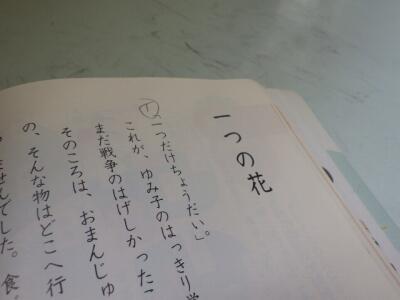 一つの花
「一つだけちょうだい。」
これが、ゆみ子のはっきり覚
まだ戦争のはげしかったこ
そのころは、おまんじゅ
の、そんな物はどこへ行
ませんでした。食